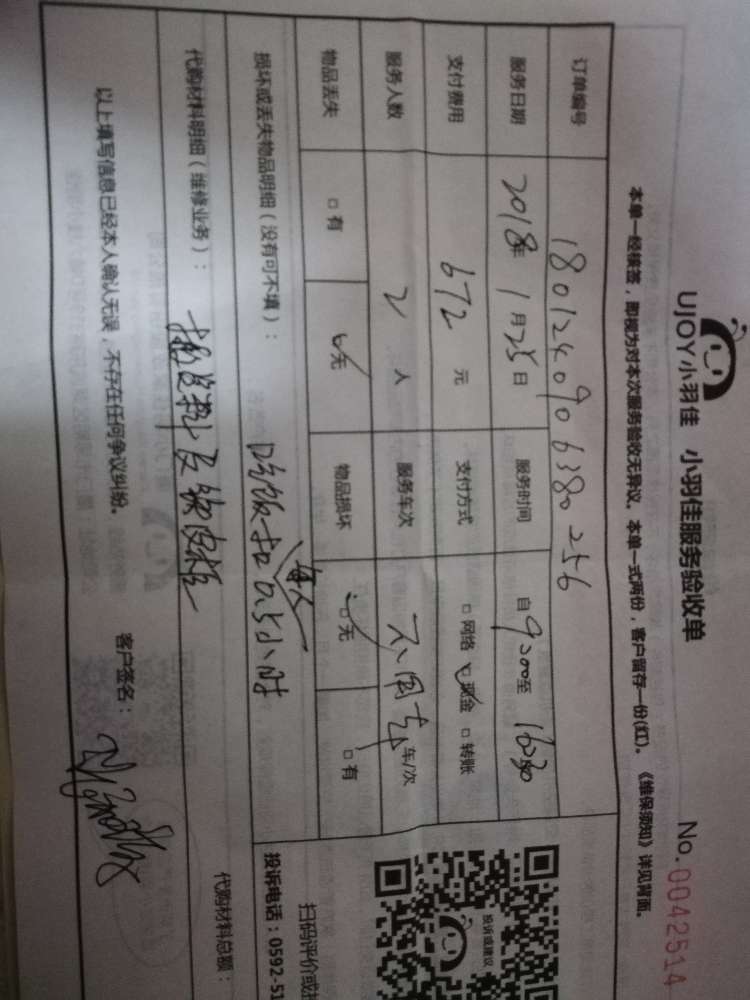 UJOY小羽佳 小羽佳服务验收单 No.0042514
本单一经核签，即视为对本次服务验收无异议。本单一式两份，客户留存一份(红)。《维保须知》详见背面。
订单编号 1801240906380256
服务日期 2018年 1月25日 服务时间 自9:00至16:30
支付费用 672 元 支付方式 □网络 ☑现金 □转账
服务人数 2 人 服务车次 不用车 车/次
物品丢失 □有 ☑无 物品损坏 ☑无 □有
损坏或丢失物品明细（没有可不填）： 吃饭扣每人0.5小时
代购材料明细（维修业务）：
代购材料总额：
以上填写信息已经本人确认无误，不存在任何争议纠纷。 客户签名：
投诉或建议
扫码评价或
投诉电话：0592-51